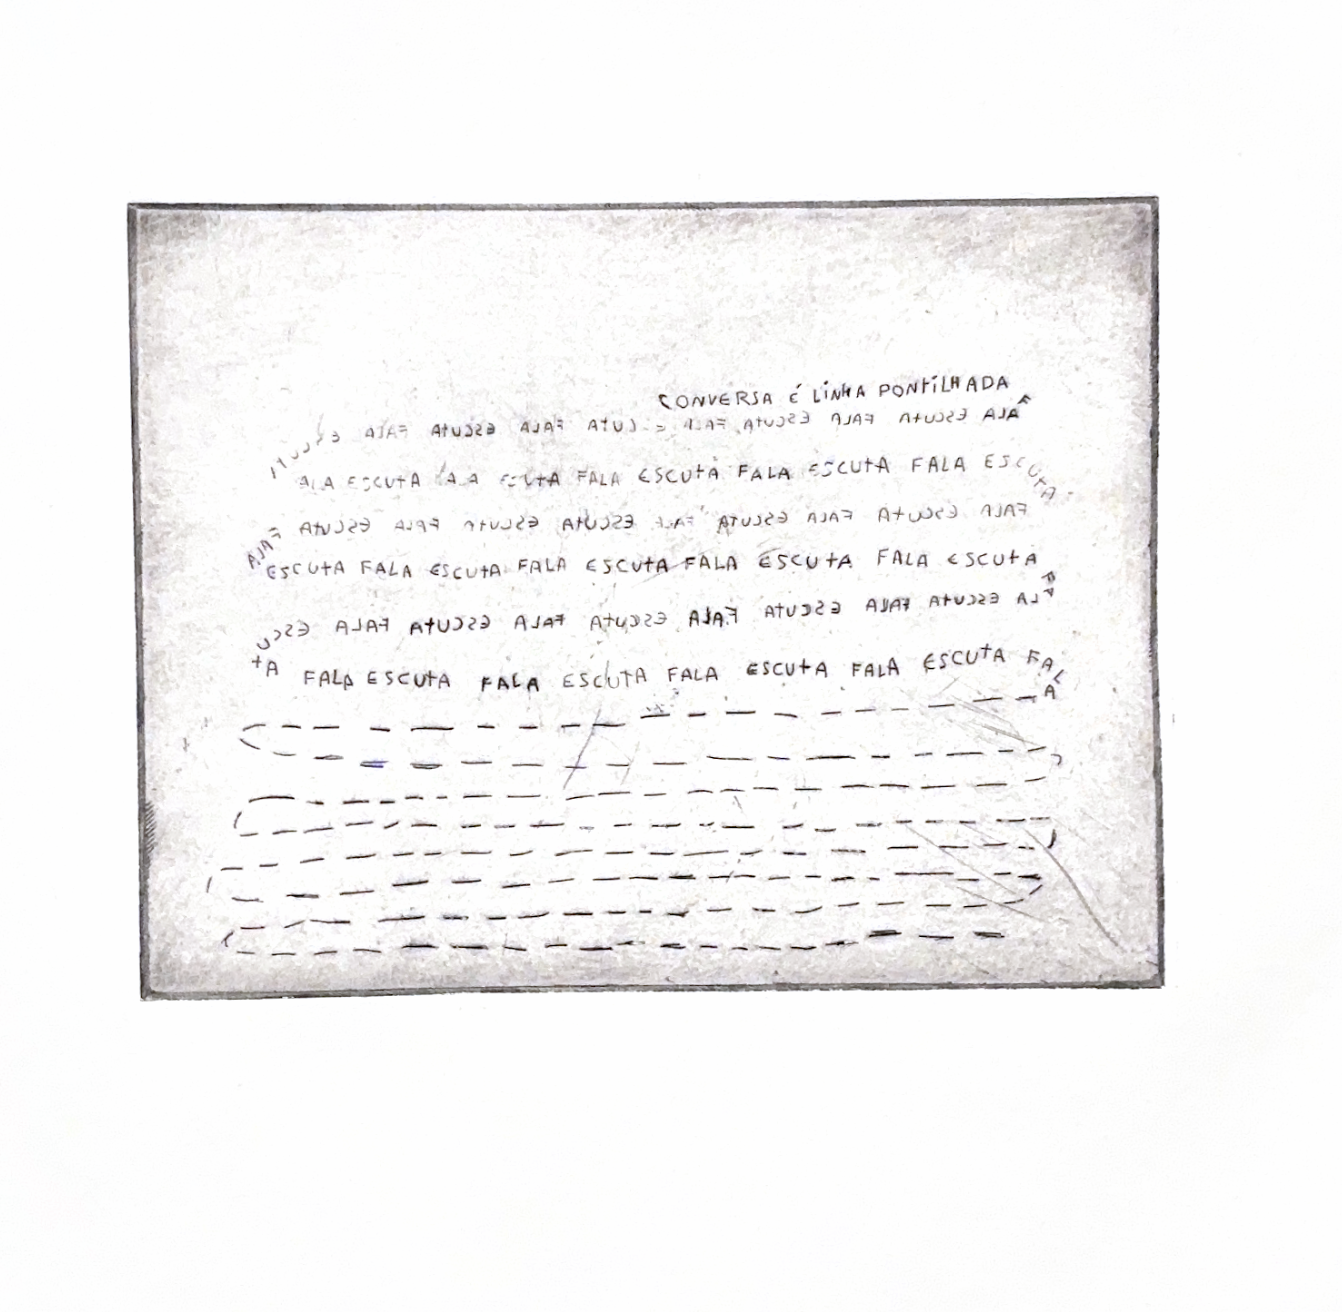 CONVERSA É LINHA PONTILHADA
FALA ESCUTA FALA ESCUTA FALA ESCUTA FALA ESCUTA FALA ESCUTA
ALA ESCUTA FALA ESCUTA FALA ESCUTA FALA ESCUTA FALA ESCUTA
FALA ESCUTA FALA ESCUTA FALA ESCUTA ESCUTA FALA ESCUTA FALA
ESCUTA FALA ESCUTA FALA ESCUTA FALA ESCUTA FALA ESCUTA
FALA ESCUTA FALA ESCUTA FALA ESCUTA FALA ESCUTA FALA ESCU
TA FALA ESCUTA FALA ESCUTA FALA ESCUTA FALA ESCUTA FALA